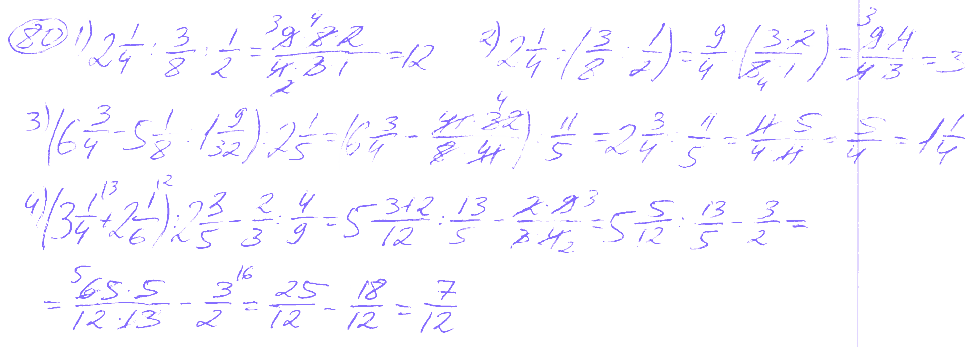 80 1) 2 1/4 : 3/8 : 1/2 = 9·8·2/4·3·1 = 12 2) 2 1/4 : (3/8 : 1/2) = 9/4 : (3·2/8·1) = 9·4/4·3 = 3
3) (6 3/4 - 5 1/8 : 1 9/32) : 2 1/5 = (6 3/4 - 41·32/8·41) : 11/5 = 2 3/4 : 11/5 = 11·5/4·11 = 5/4 = 1 1/4
4) (3 1/4 + 2 1/6) : 2 3/5 - 2/3 : 4/9 = 5 3+2/12 : 13/5 - 2·9/3·4 = 5 5/12 : 13/5 - 3/2 =
= 65·5/12·13 - 3/2 = 25/12 - 18/12 = 7/12